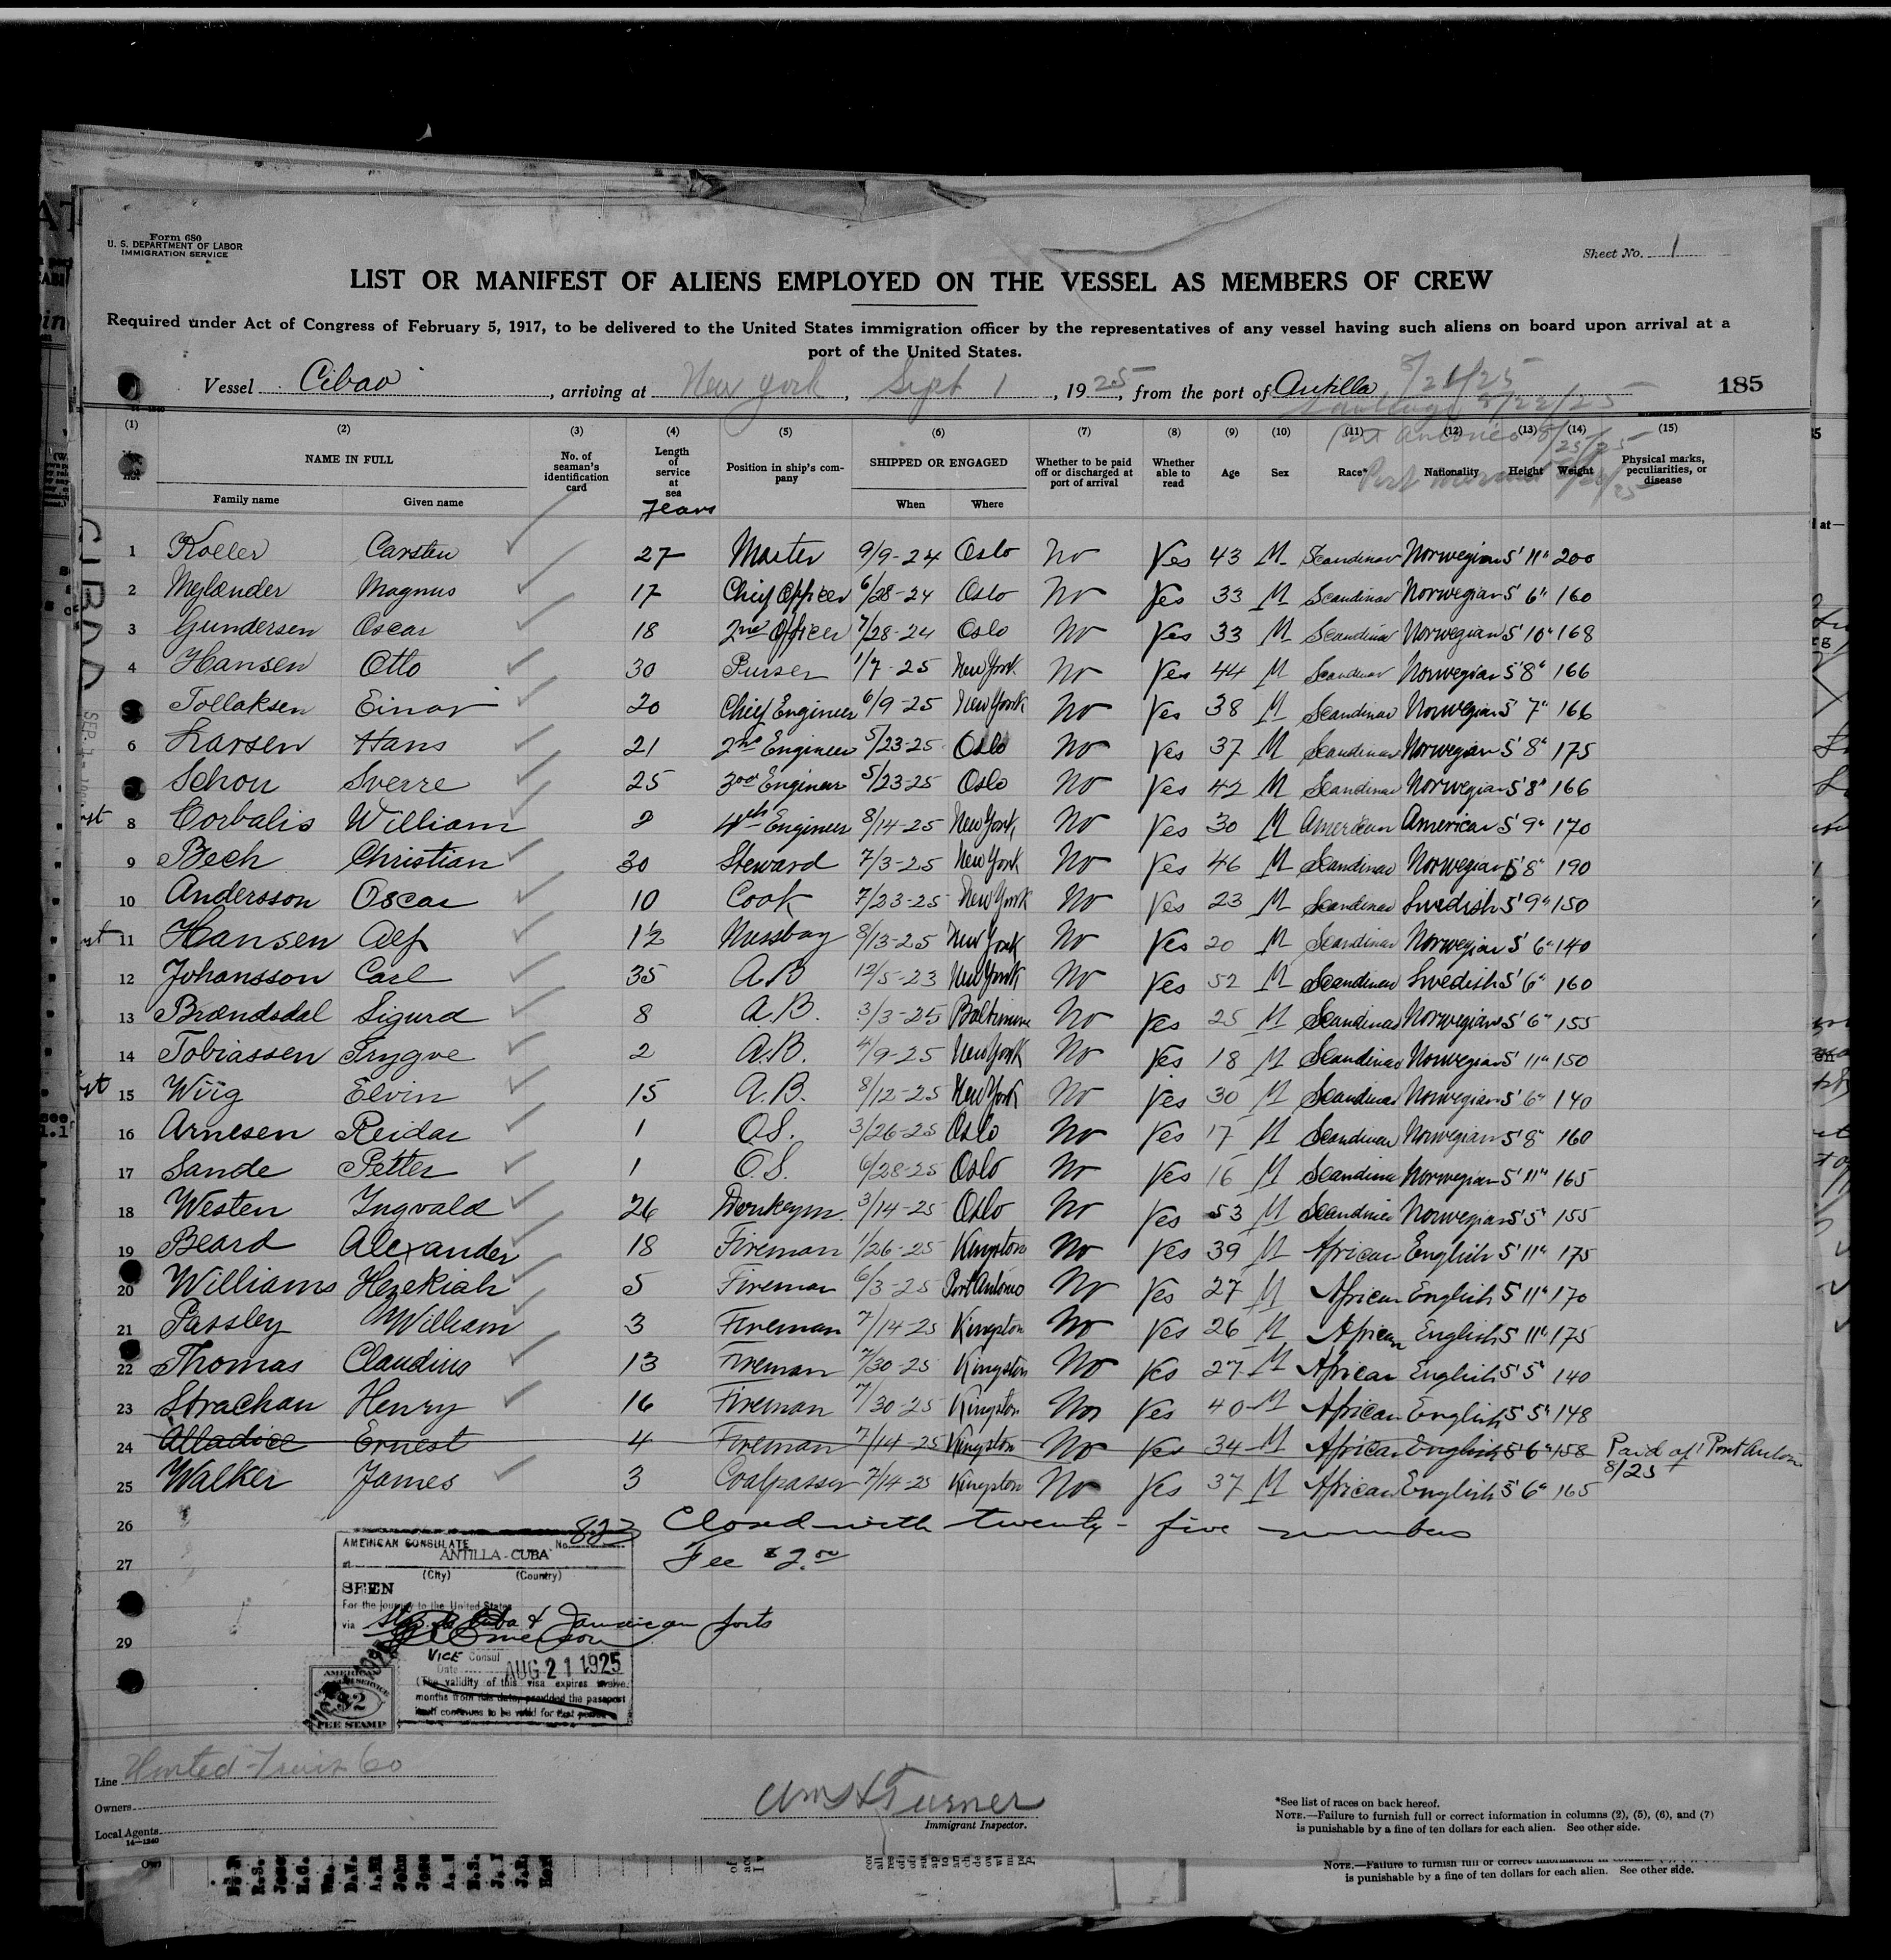 Form 680
U. S. DEPARTMENT OF LABOR
IMMIGRATION SERVICE
Sheet No. 1
LIST OR MANIFEST OF ALIENS EMPLOYED ON THE VESSEL AS MEMBERS OF CREW
Required under Act of Congress of February 5, 1917, to be delivered to the United States immigration officer by the representatives of any vessel having such aliens on board upon arrival at a
port of the United States.
Vessel Cibao, arriving at New York, Sept 1, 1925, from the port of Antilla 8/21/25
185
Santiago 8/22/25
Port Antonio 8/25/25
(1) (2) (3) (4) (5) (6) (7) (8) (9) (10) (11) (12) (13) (14) (15)
NAME IN FULL
Family name Given name
No. of seaman's identification card
Length of service at sea
Years
Position in ship's company
SHIPPED OR ENGAGED
When Where
Whether to be paid off or discharged at port of arrival
Whether able to read
Age Sex Race* Nationality Height Weight
Physical marks, peculiarities, or disease
1 Koller Carsten 27 Master 9/9-24 Oslo No Yes 43 M Scandinav Norwegian 5'11" 200
2 Mylander Magnus 17 Chief Officer 6/28-24 Oslo No Yes 33 M Scandinav Norwegian 5'6" 160
3 Gundersen Oscar 18 2nd Officer 7/28-24 Oslo No Yes 33 M Scandinav Norwegian 5'10" 168
4 Hansen Otto 30 Purser 1/7-25 New York No Yes 44 M Scandinav Norwegian 5'8" 166
Tollaksen Einar 20 Chief Engineer 6/9-25 New York No Yes 38 M Scandinav Norwegian 5'7" 166
6 Larsen Hans 21 2nd Engineer 5/23-25 Oslo No Yes 37 M Scandinav Norwegian 5'8" 175
Schou Sverre 25 3rd Engineer 5/23-25 Oslo No Yes 42 M Scandinav Norwegian 5'8" 166
8 Corbalis William 2 4th Engineer 8/14-25 New York No Yes 30 M American American 5'9" 170
9 Bech Christian 30 Steward 7/3-25 New York No Yes 46 M Scandinav Norwegian 5'8" 190
10 Andersson Oscar 10 Cook 7/23-25 New York No Yes 23 M Scandinav Swedish 5'9" 150
11 Hansen Alf 1½ Messboy 8/13-25 New York No Yes 20 M Scandinav Norwegian 5'6" 140
12 Johansson Carl 35 A.B 12/5-23 New York No Yes 52 M Scandinav Swedish 5'6" 160
13 Brændsdal Sigurd 8 A.B. 3/3-25 Baltimore No Yes 25 M Scandinav Norwegian 5'6" 155
14 Tobiassen Trygve 2 A.B. 4/9-25 New York No Yes 18 M Scandinav Norwegian 5'11" 150
15 Wiig Elvin 15 A.B. 8/12-25 New York No Yes 30 M Scandinav Norwegian 5'6" 140
16 Arnesen Reidar 1 O.S. 3/26-25 Oslo No Yes 17 M Scandinav Norwegian 5'8" 160
17 Sande Petter 1 O.S. 6/28-25 Oslo No Yes 16 M Scandinav Norwegian 5'11" 165
18 Westen Ingvald 26 Donkeym. 3/14-25 Oslo No Yes 53 M Scandinav Norwegian 5'5" 155
19 Beard Alexander 18 Fireman 1/26-25 Kingston No Yes 39 M African English 5'11" 175
20 Williams Hezekiah 5 Fireman 6/3-25 Port Antonio No Yes 27 M African English 5'11" 170
21 Passley William 3 Fireman 7/14-25 Kingston No Yes 26 M African English 5'11" 175
22 Thomas Claudius 13 Fireman 7/30-25 Kingston No Yes 27 M African English 5'5" 140
23 Strachan Henry 16 Fireman 7/30-25 Kingston No Yes 40 M African English 5'5" 148
24 Alladice Ernest 4 Fireman 7/14-25 Kingston No Yes 34 M African English 5'6" 158 Paid off Port Anton 8/25
25 Walker James 3 Coalpasser 7/14-25 Kingston No Yes 37 M African English 5'6" 165
26 Closed with twenty-five numbers
27 Fee $2.00
29
AMERICAN CONSULATE No. 823
at ANTILLA-CUBA
(City) (Country)
SEEN
For the journey to the United States
via Cuba & Jamaican ports
VICE Consul
Date AUG 21 1925
(The validity of this visa expires twelve
months from this date, provided the passport
itself continues to be valid for that period
AMERICAN
FEE STAMP
Line United Fruit Co
Owners
Local Agents
14-1240
Wm H Turner
Immigrant Inspector.
*See list of races on back hereof.
NOTE.—Failure to furnish full or correct information in columns (2), (5), (6), and (7)
is punishable by a fine of ten dollars for each alien. See other side.
is punishable by a fine of ten dollars for each alien. See other side.